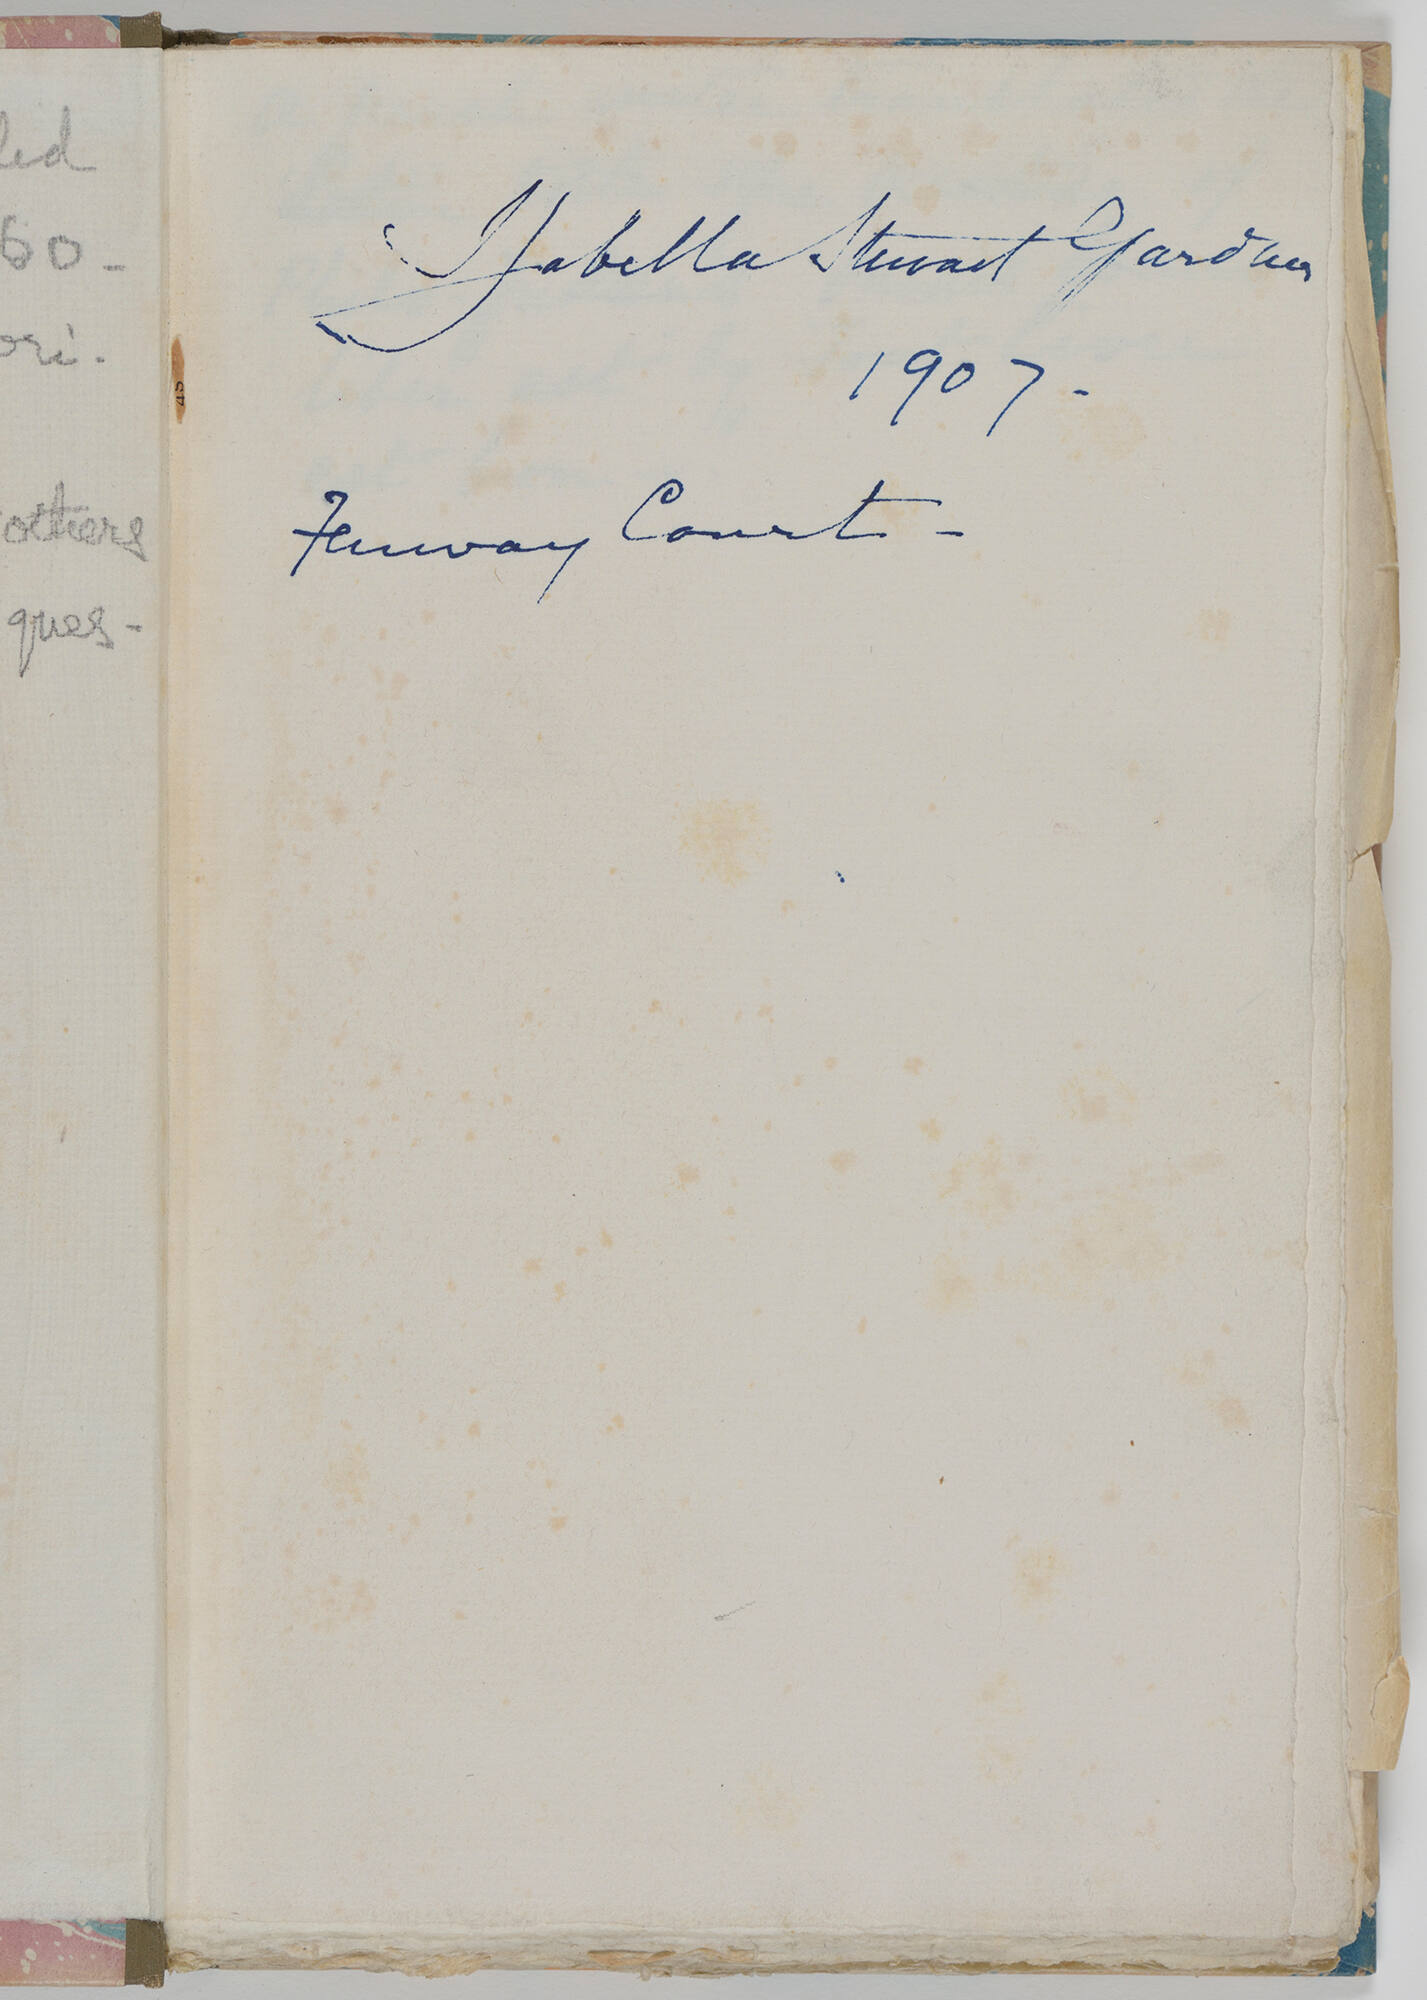 led
60-
ori.
others
ques-
Isabella Stewart Gardner
1907-
Fenway Court-
45